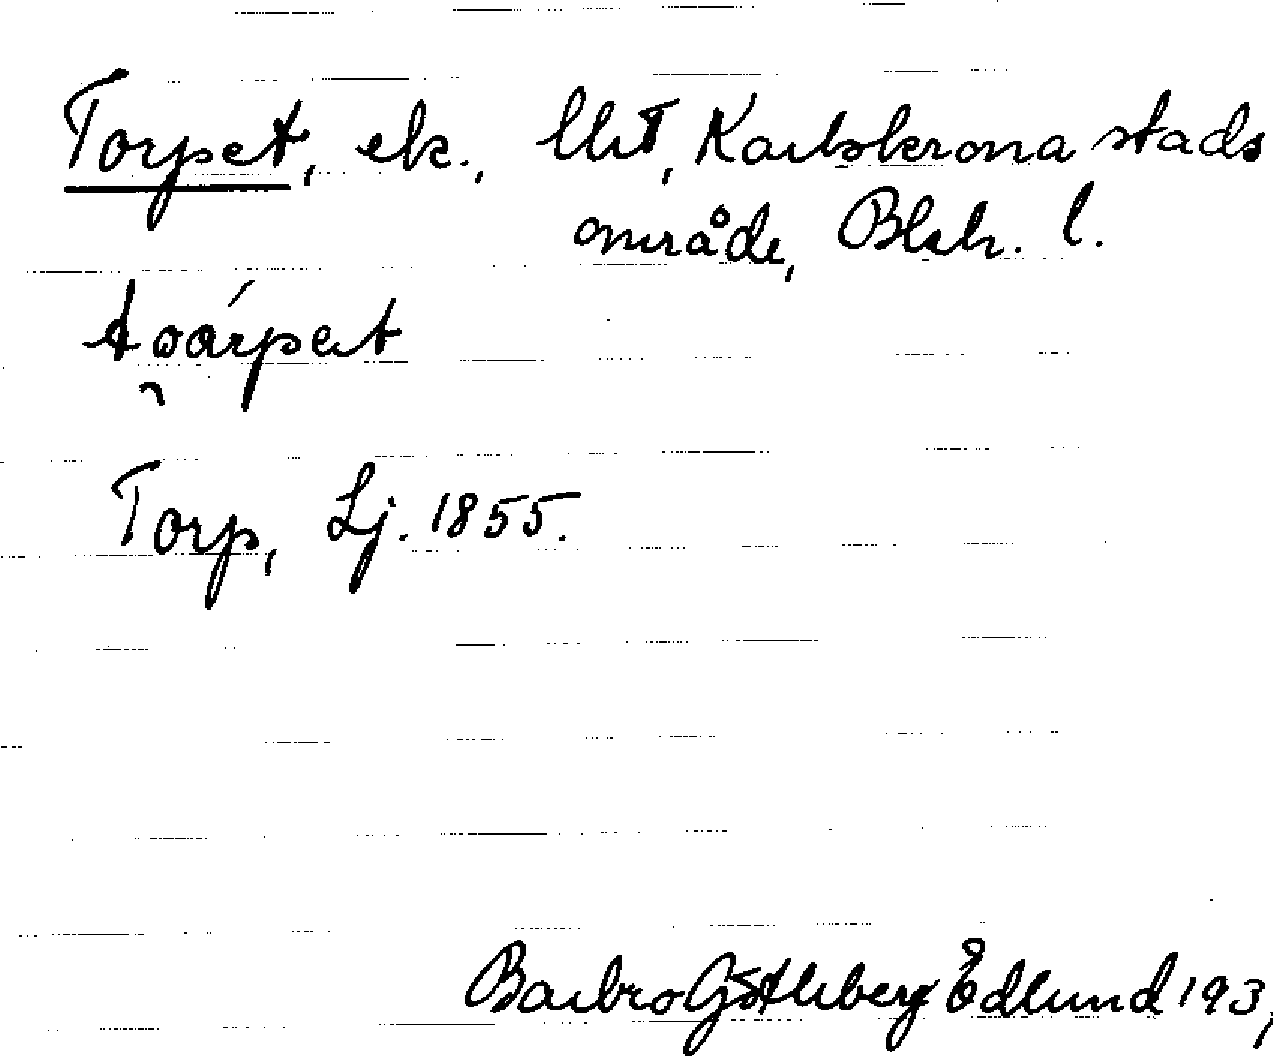 Torpet, ek., Utö, Karlskrona stads
område, Blek. l.
Torp, Lj. 1855.
Barbro Götleberg Edlund 193